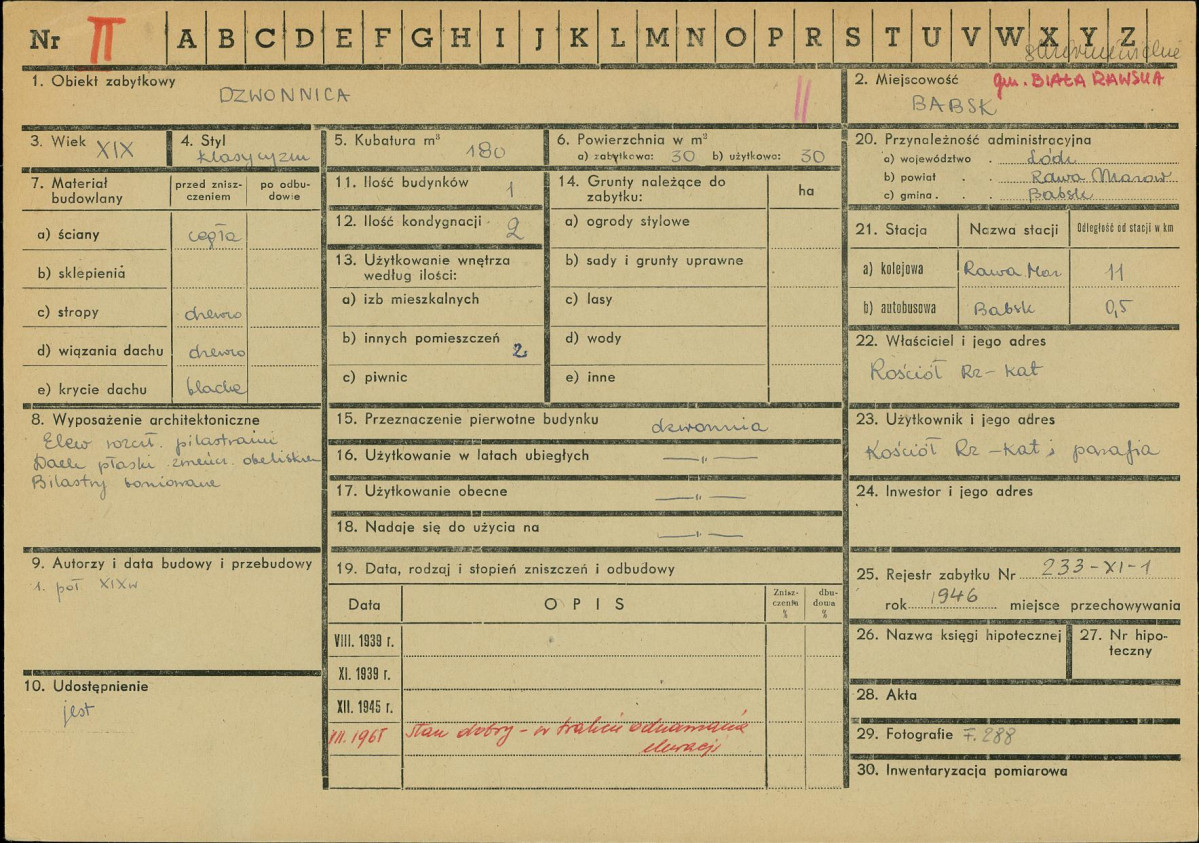 Nr II A B C D E F G H I J K L M N O P R S T U V W X Y Z
skierniewickie
1. Obiekt zabytkowy
DZWONNICA
II
2. Miejscowość gm. BIAŁA RAWSKA
BABSK
3. Wiek XIX
4. Styl
klasycyzm
5. Kubatura m³ 180
6. Powierzchnia w m²
a) zabytkowa: 30 b) użytkowa: 30
7. Materiał budowlany
przed zniszczeniem
po odbudowie
a) ściany cegła
b) sklepienia
c) stropy drewno
d) wiązania dachu drewno
e) krycie dachu blacha
8. Wyposażenie architektoniczne
Elew rozcł. pilastrami
Dach płaski zwieńcz. obeliskiem
Pilastry boniowane
9. Autorzy i data budowy i przebudowy
1. poł XIXw
10. Udostępnienie
jest
11. Ilość budynków 1
12. Ilość kondygnacji 2
13. Użytkowanie wnętrza
według ilości:
a) izb mieszkalnych
b) innych pomieszczeń 2
c) piwnic
14. Grunty należące do
zabytku:
ha
a) ogrody stylowe
b) sady i grunty uprawne
c) lasy
d) wody
e) inne
15. Przeznaczenie pierwotne budynku dzwonnia
16. Użytkowanie w latach ubiegłych —„—
17. Użytkowanie obecne —„—
18. Nadaje się do użycia na —„—
19. Data, rodzaj i stopień zniszczeń i odbudowy
Data
OPIS
Zniszczenia %
dbudowa %
VIII. 1939 r.
XI. 1939 r.
XII. 1945 r.
VII. 1965 Stan dobry – w trakcie odnawiania
elewacji
20. Przynależność administracyjna
a) województwo Łódź
b) powiat Rawa Mazow
c) gmina Babsk
21. Stacja
Nazwa stacji
Odległość od stacji w km
a) kolejowa Rawa Maz 11
b) autobusowa Babsk 0,5
22. Właściciel i jego adres
Kościół Rz-kat
23. Użytkownik i jego adres
Kościół Rz-kat i parafia
24. Inwestor i jego adres
25. Rejestr zabytku Nr 233-XI-1
rok 1946 miejsce przechowywania
26. Nazwa księgi hipotecznej
27. Nr hipoteczny
28. Akta
29. Fotografie F. 288
30. Inwentaryzacja pomiarowa